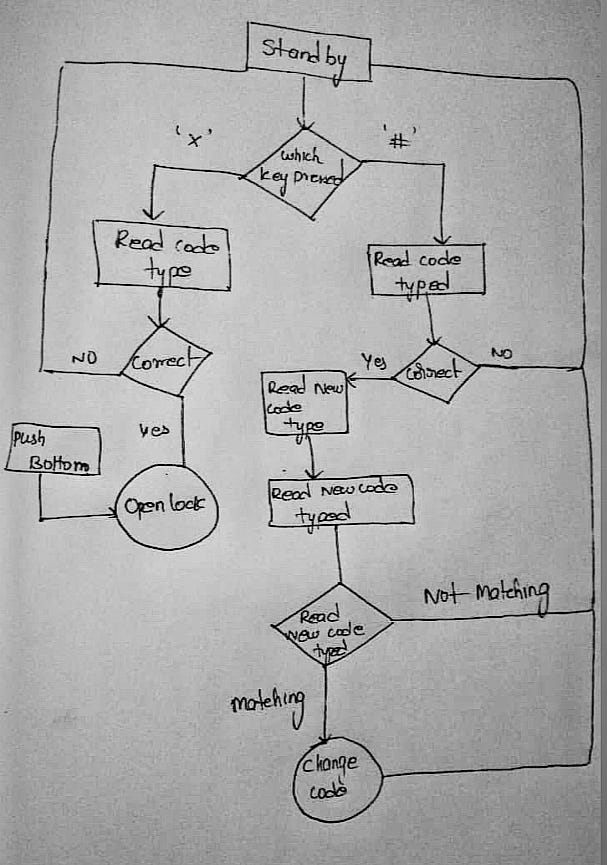 Standby
'x'
'#'
which
key pressed
Read code
type
Read code
typed
NO
correct
Yes
correct
NO
Read New
code
type
Yes
Push
Bottom
Open lock
Read New code
typed
Read
New code
typed
Not Matching
Matching
Change
code